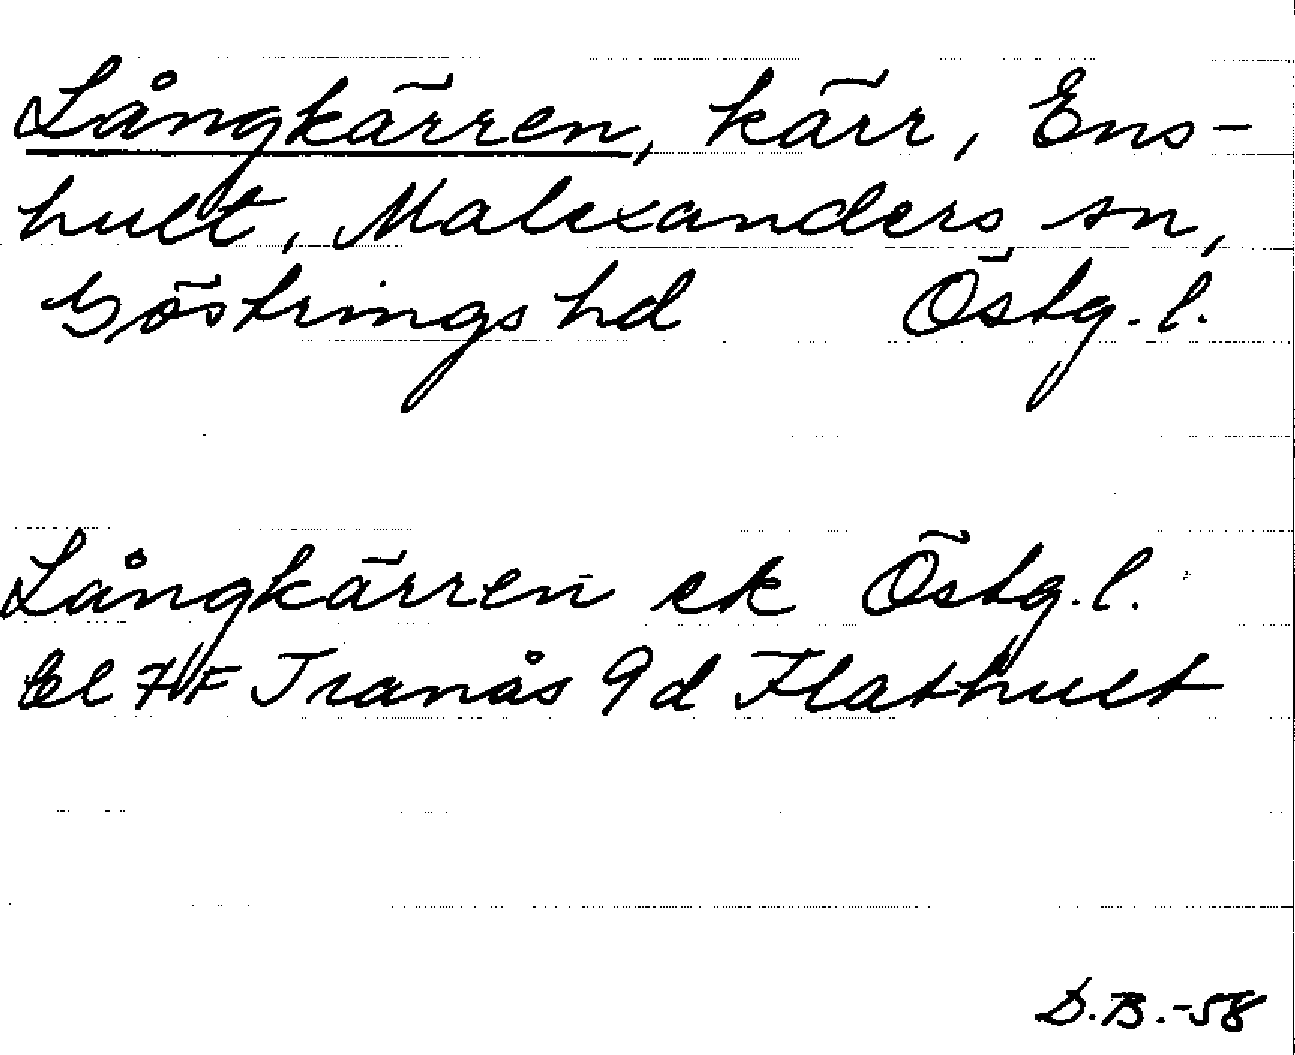 Långkärren, kärr, Ens-
hult, Malexanders sn,
Göstrings hd Östg. l.
Långkärren ek Östg. l.
bl 7 F Tranås 9d Flathult
D.B.-58